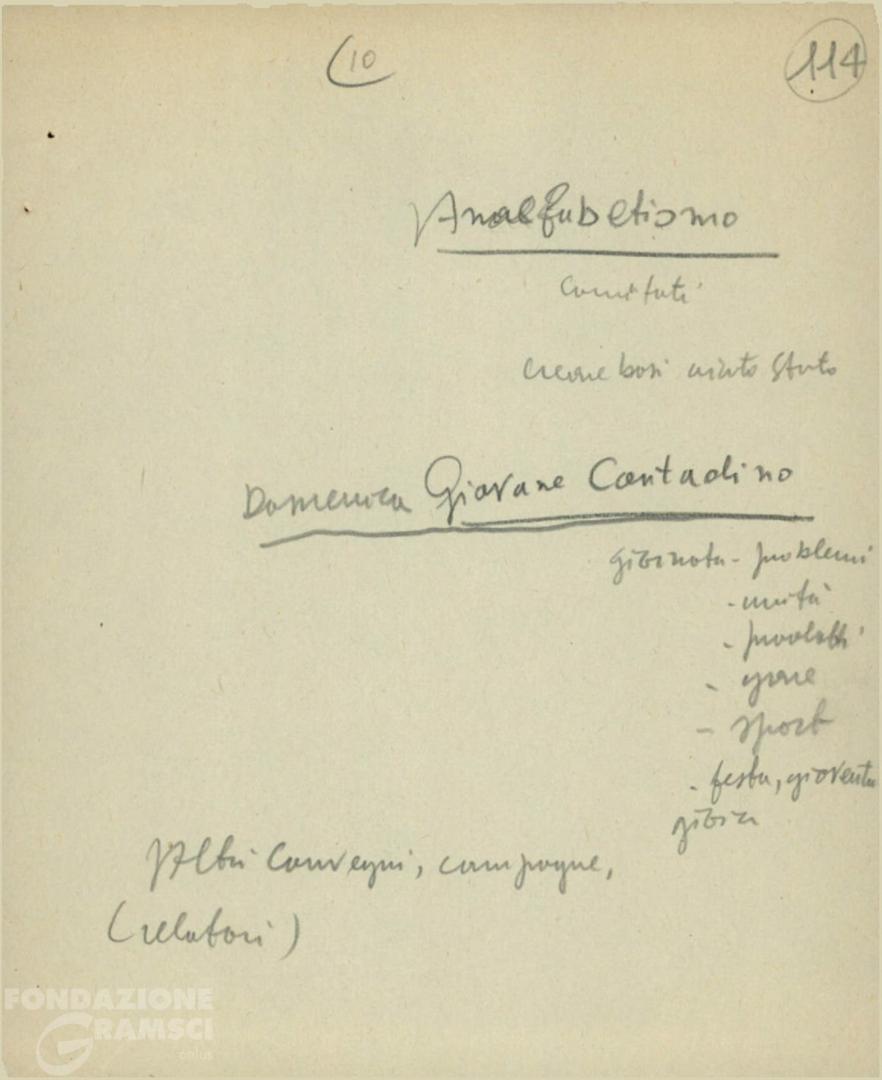 10
114
Analfabetismo
Comitati
creare basi aiuto Stato
Domenica Giovane Contadino
- problemi
- unità
- prodotti
- gare
- sport
- festa, gioventù
gioia
Altri Convegni, campagne,
(relatori)
FONDAZIONE
GRAMSCI
onlus